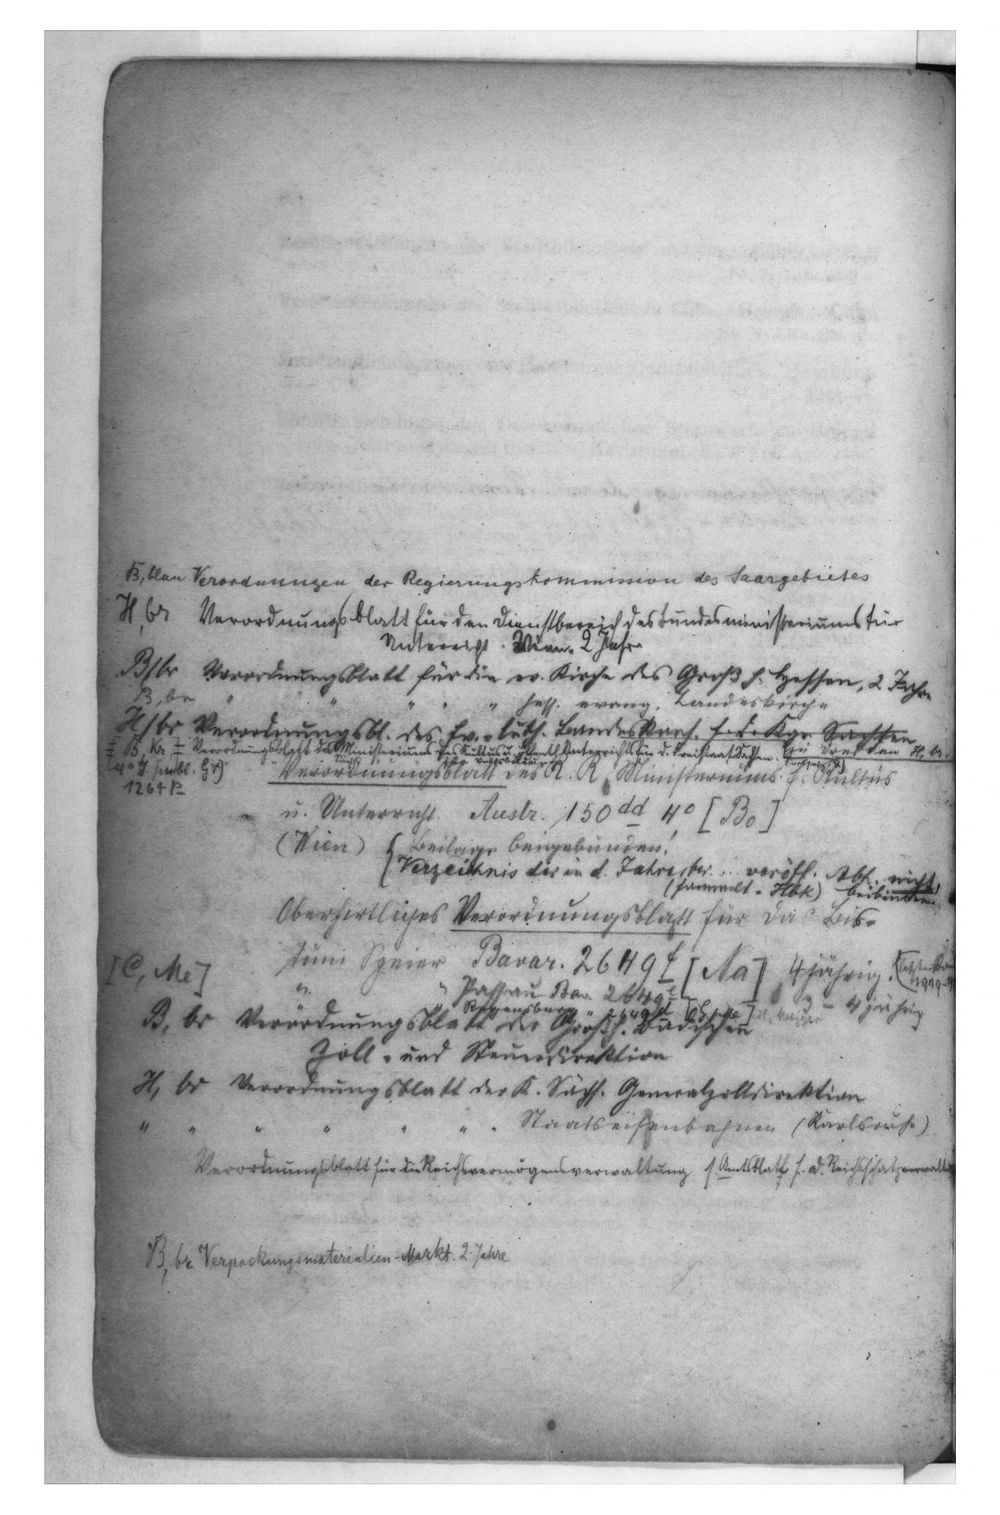 B, blau Verordnungen der Regierungskommission des Saargebietes
H, br Verordnungsblatt für den Dienstbereich des Bundesministeriums für
Unterricht. Wien. 2 Jahre
B, br Verordnungsblatt für die ev. Kirche des Großh. Hessen, 2 Jahre
B, br " " " " " hess. evang. Landeskirche
H, br Verordnungsbl. des Ev.-luth. Landeskons. f. d. Kgr. Sachsen
B, br Verordnungsblatt des Ministeriums des Kultus u. öffentl. Unterrichts für d. Freistaat Sachsen. Dresden H, br.
4° J. publ. G
1264
Verordnungsblatt des K. K. Ministeriums f. Kultus
u. Unterricht. Austr. 150 dd 4° [Bo]
(Wien) Beilage beigebunden!
Verzeichnis der in d. veröff. Abh. nicht
(sammelt - Hbk) beibinden.
Oberhirtliches Verordnungsblatt für das Bis-
[C, Me] tum Speier Bavar. 2649 f [Na] 4jährig.
" " Passau Bav. 2649 4jährig
" Regensburg " 2649
B, br Verordnungsblatt der Großh. Badischen
Zoll- und Steuerdirektion
H, br Verordnungsblatt der K. Sächs. Generalzolldirektion
" " " " " " " Staatseisenbahnen (Karlsruhe)
Verordnungsblatt für die Reichsvermögensverwaltung s. Amtsblatt f. d. Reichsschatzverwaltung
B, br Verpackungsmaterialien-Markt. 2 Jahre